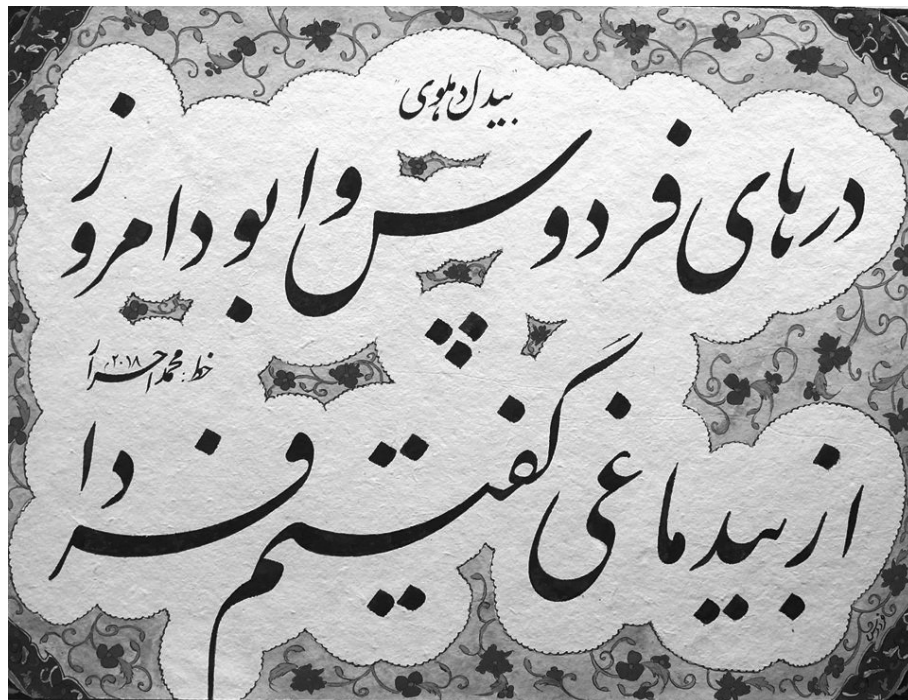 بیدل دهلوی
درهای فردوس وا بود امروز
خط: محمد احراری ۲۰۱۸
از بیدماغی گفتیم فردا